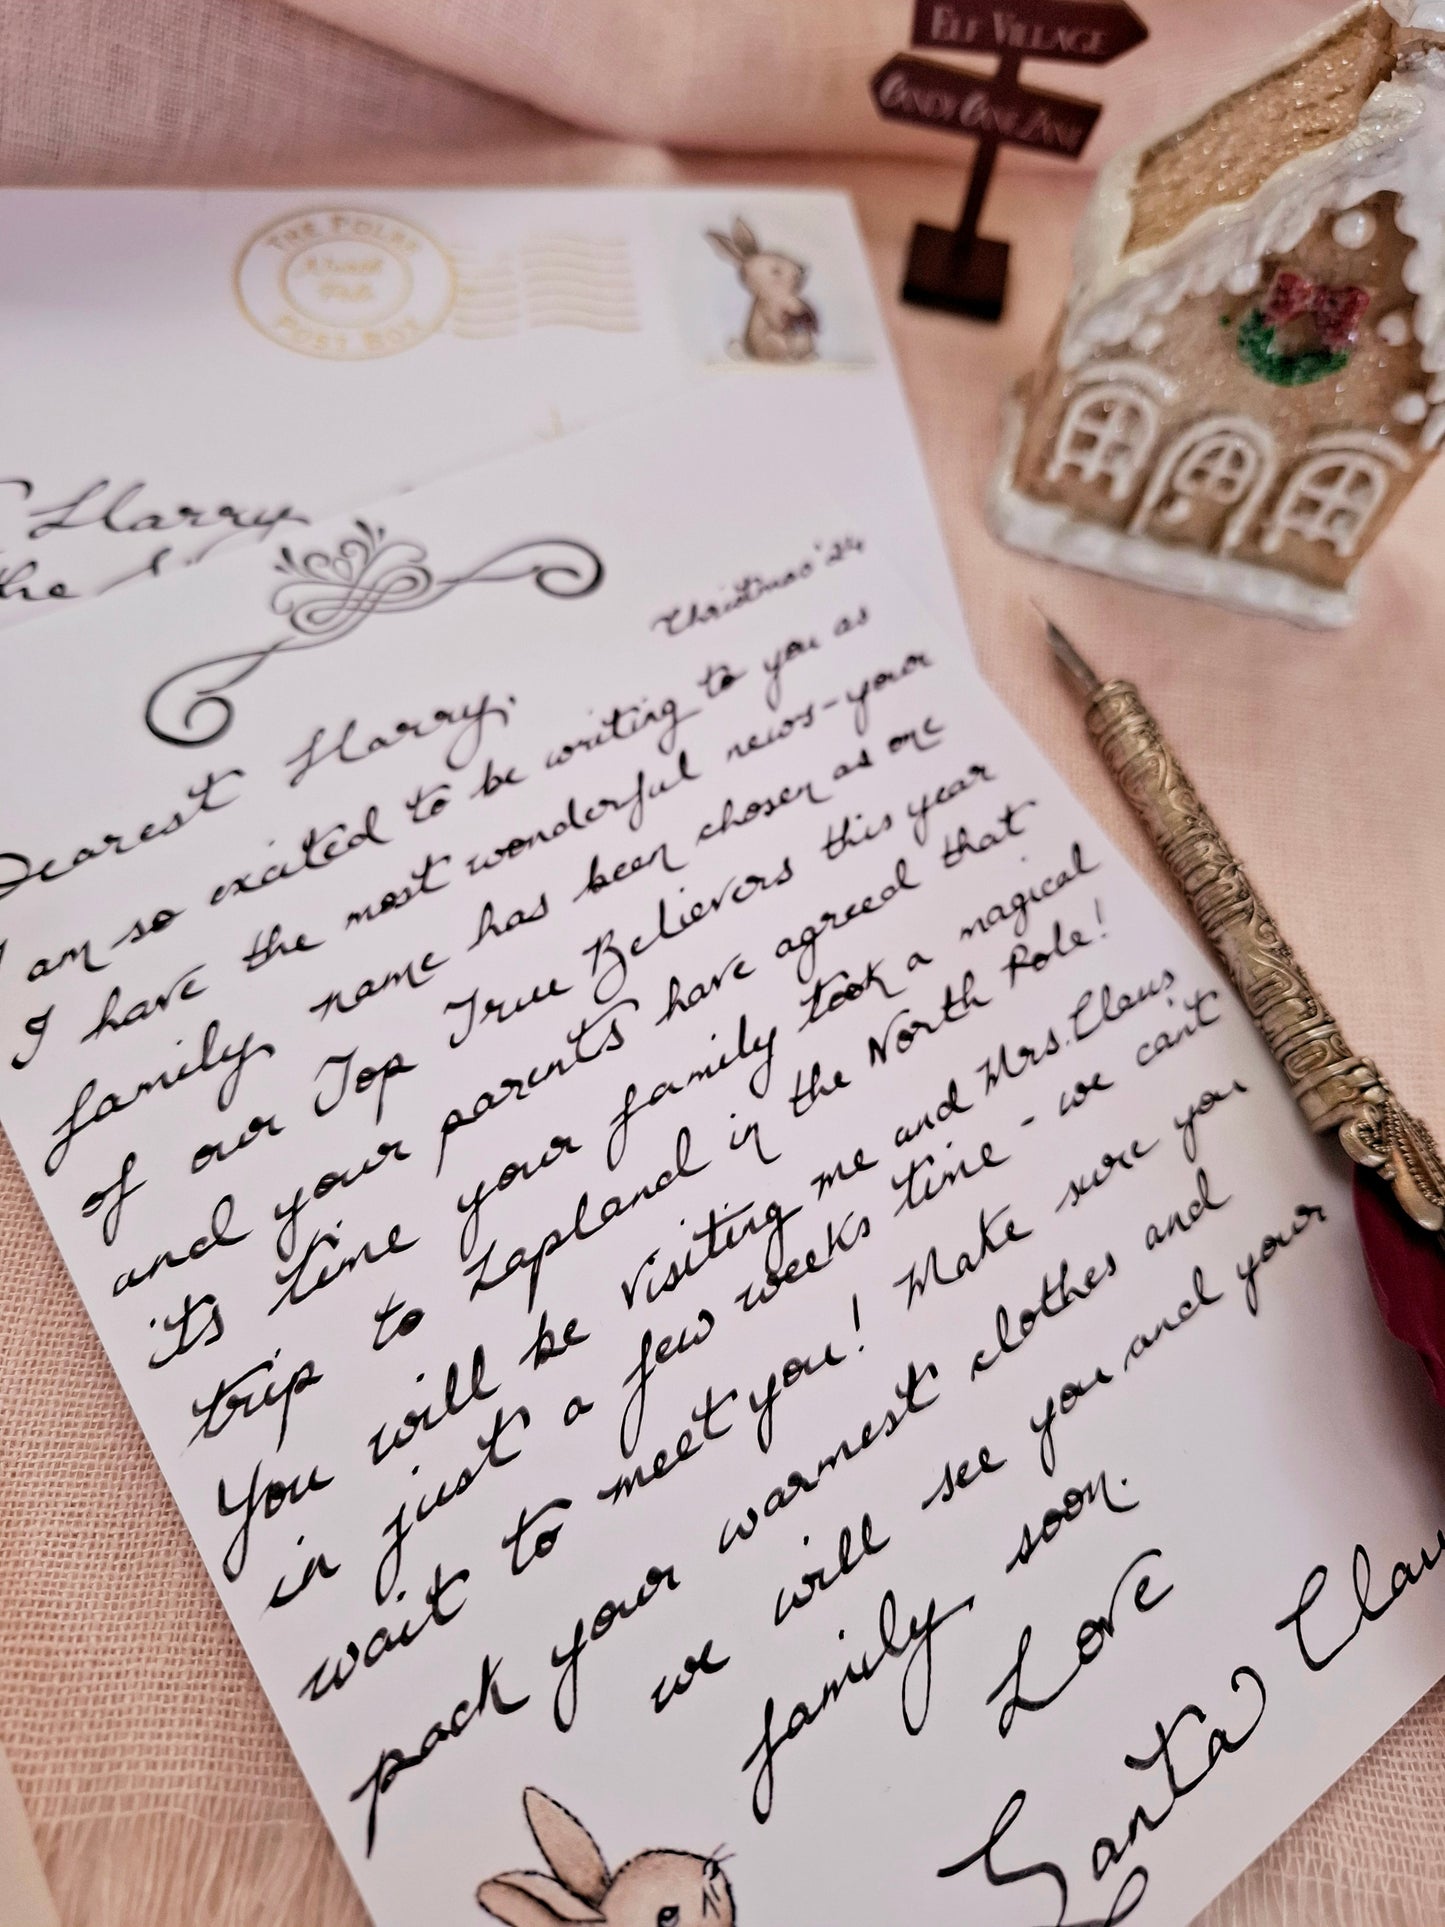 ELF VILLAGE
CANDY CANE LANE
THE POLAR
POST BOX
Harry
the
Christmas '24
Dearest Harry,
I am so excited to be writing to you as
I have the most wonderful news - your
family name has been chosen as one
of our Top True Believers this year
and your parents have agreed that
it's time your family took a magical
trip to Lapland in the North Pole!
You will be visiting me and Mrs. Claus
in just a few weeks time - we can't
wait to meet you! Make sure you
pack your warmest clothes and
we will see you and your
family soon.
Love
Santa Clau